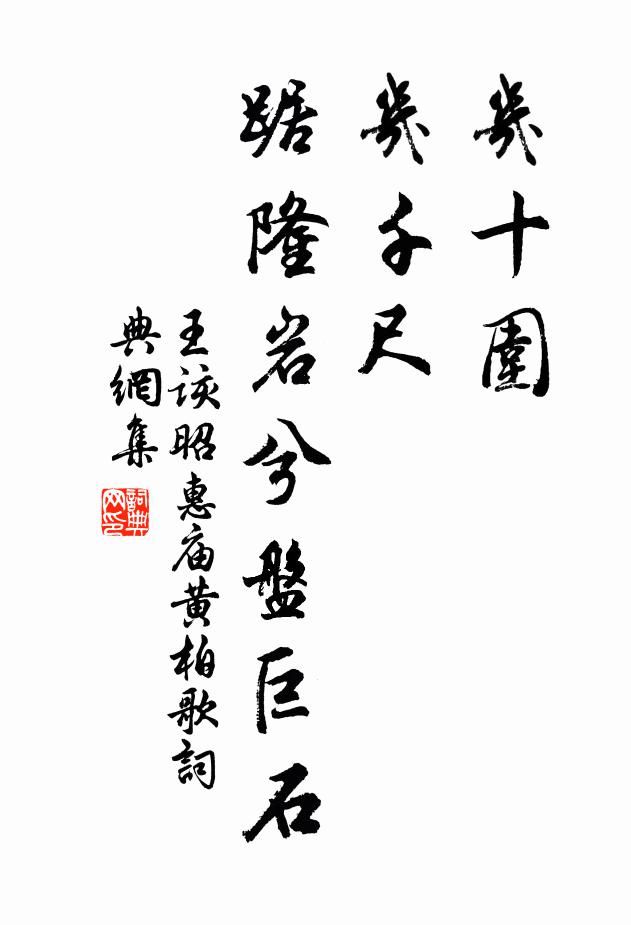 幾十圍
幾千尺
踞隆岩兮盤巨石
王該昭惠庙黄柏歌詞
典網集
詞典
网印